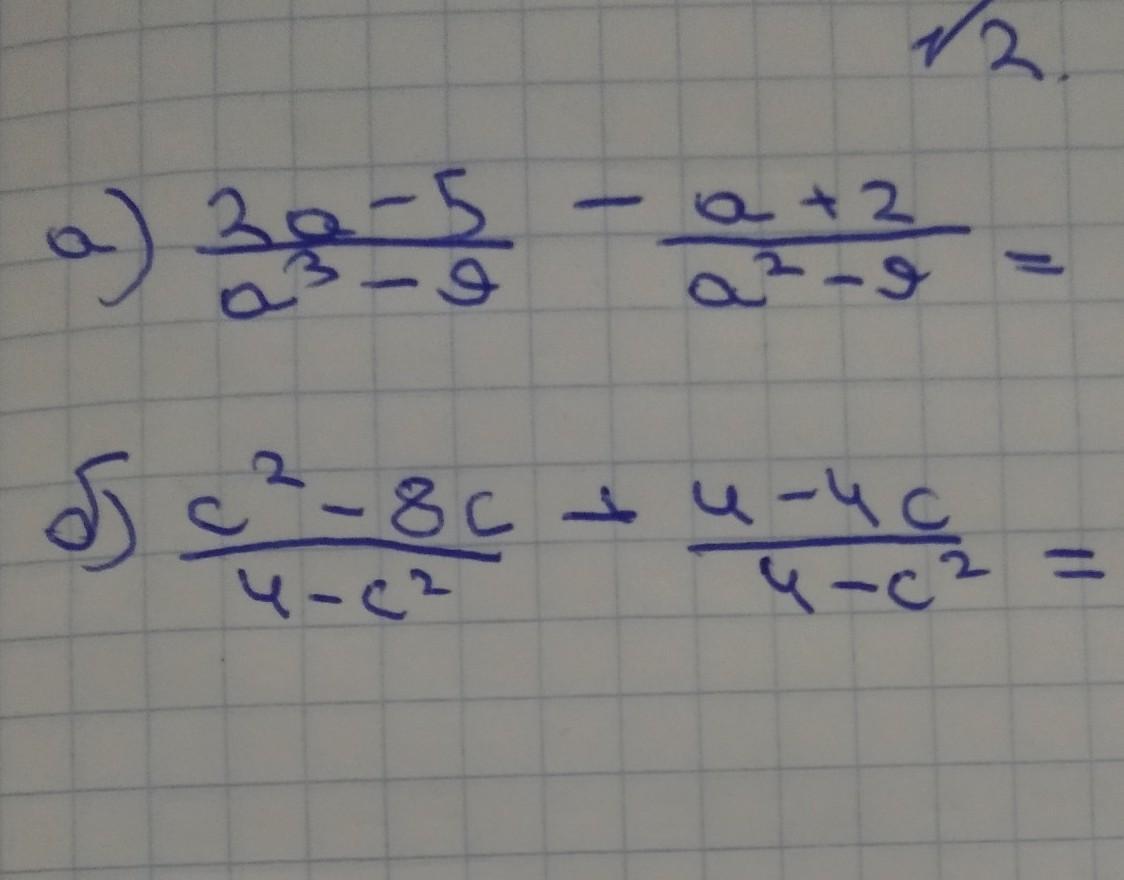 √2.
а) \frac{2a-5}{a^3-9} - \frac{a+2}{a^2-9} =
б) \frac{c^2-8c}{4-c^2} + \frac{4-4c}{4-c^2} =